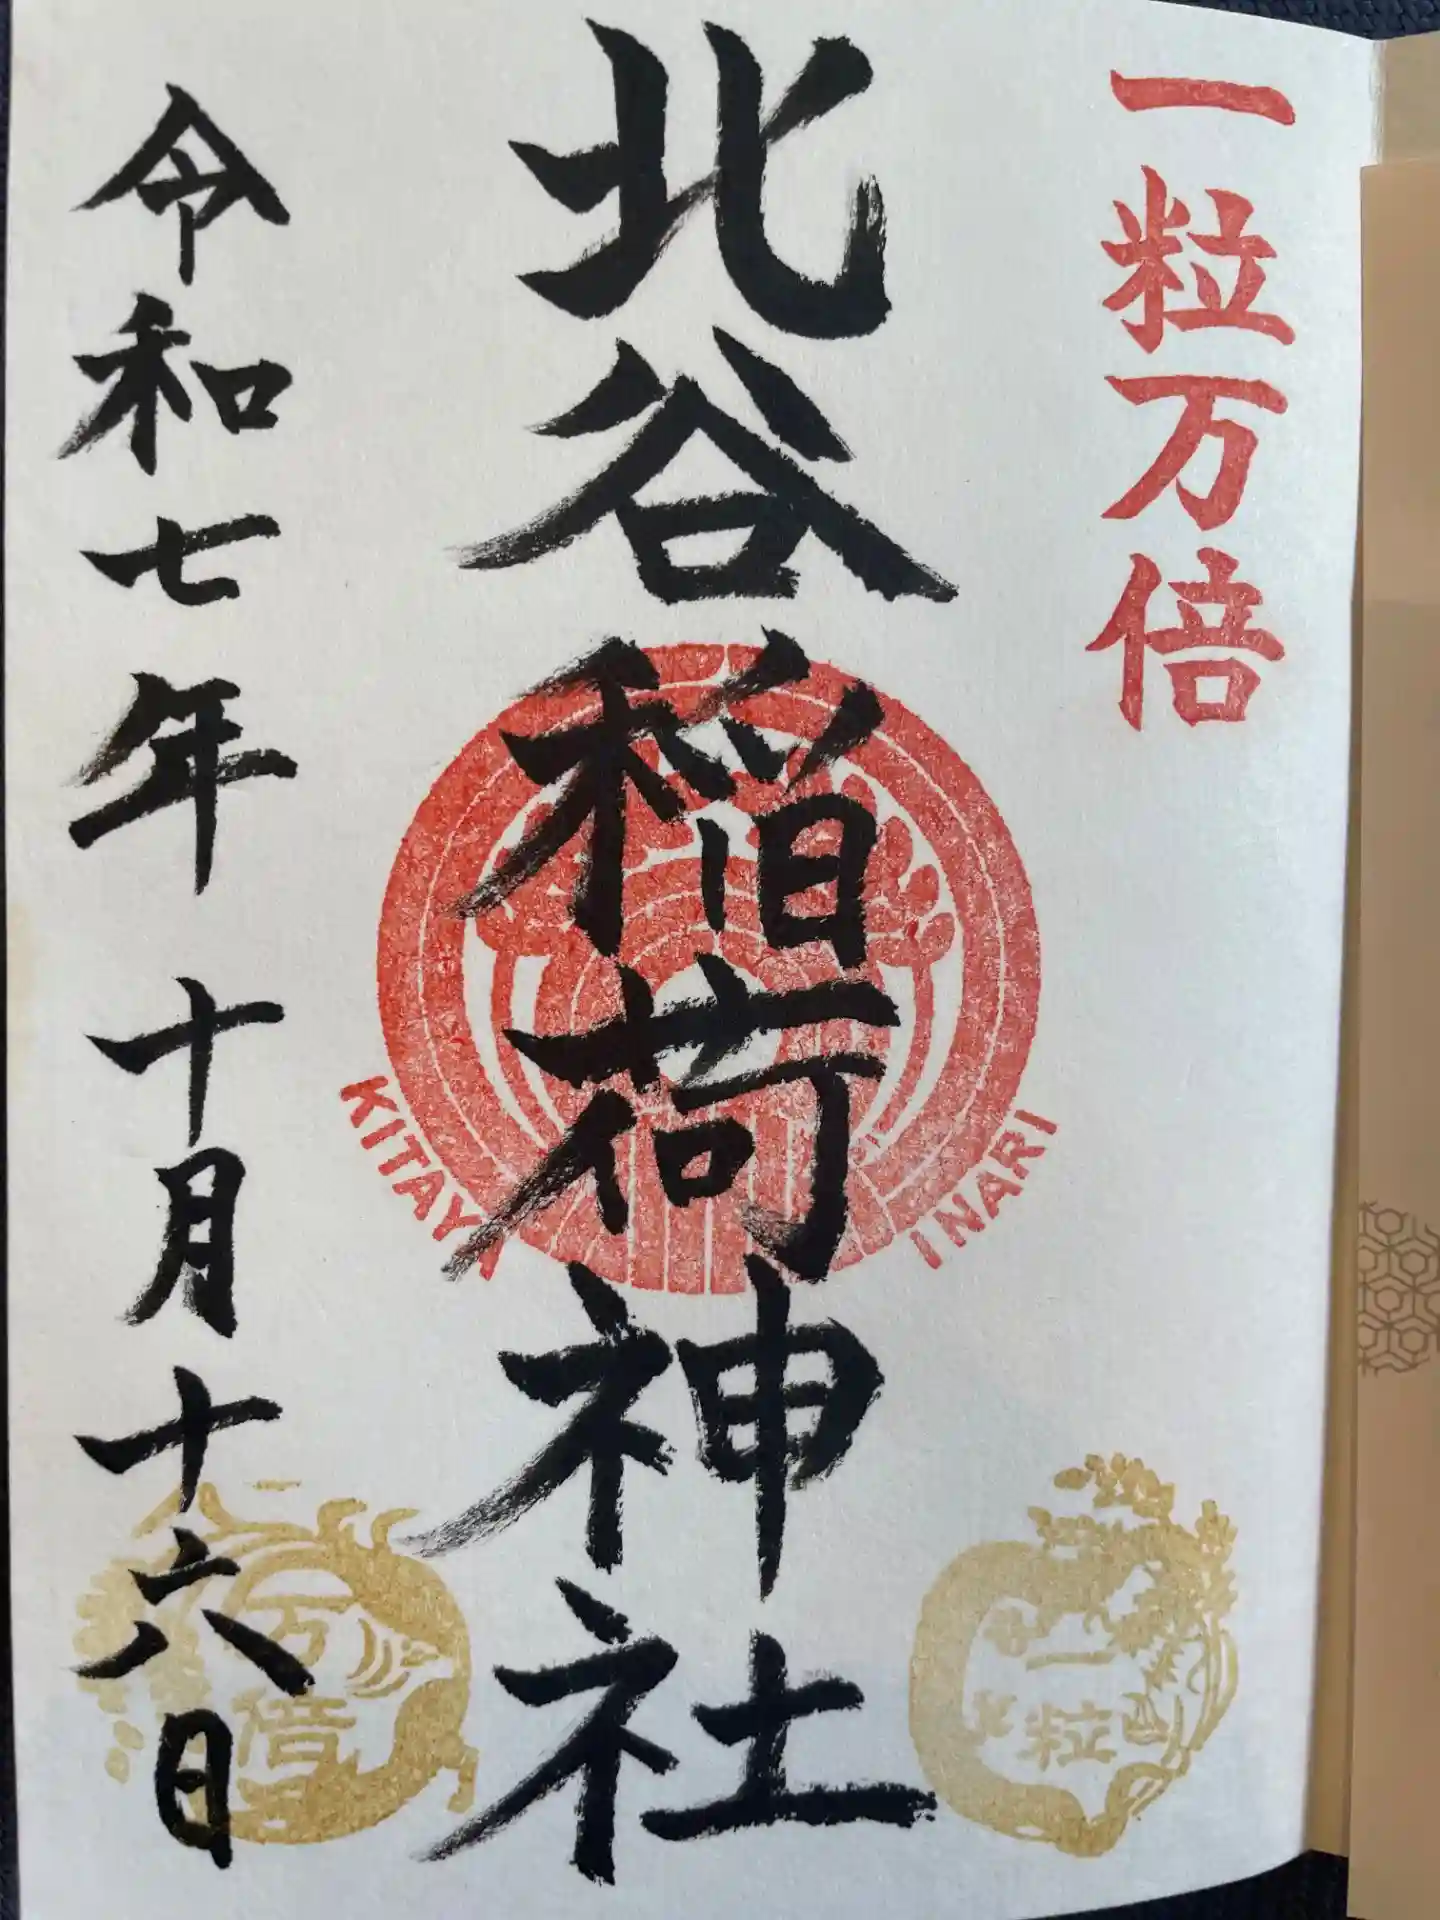 一粒万倍
北谷稲荷神社
KITAYA INARI
令和七年 十月十六日
一粒
万倍